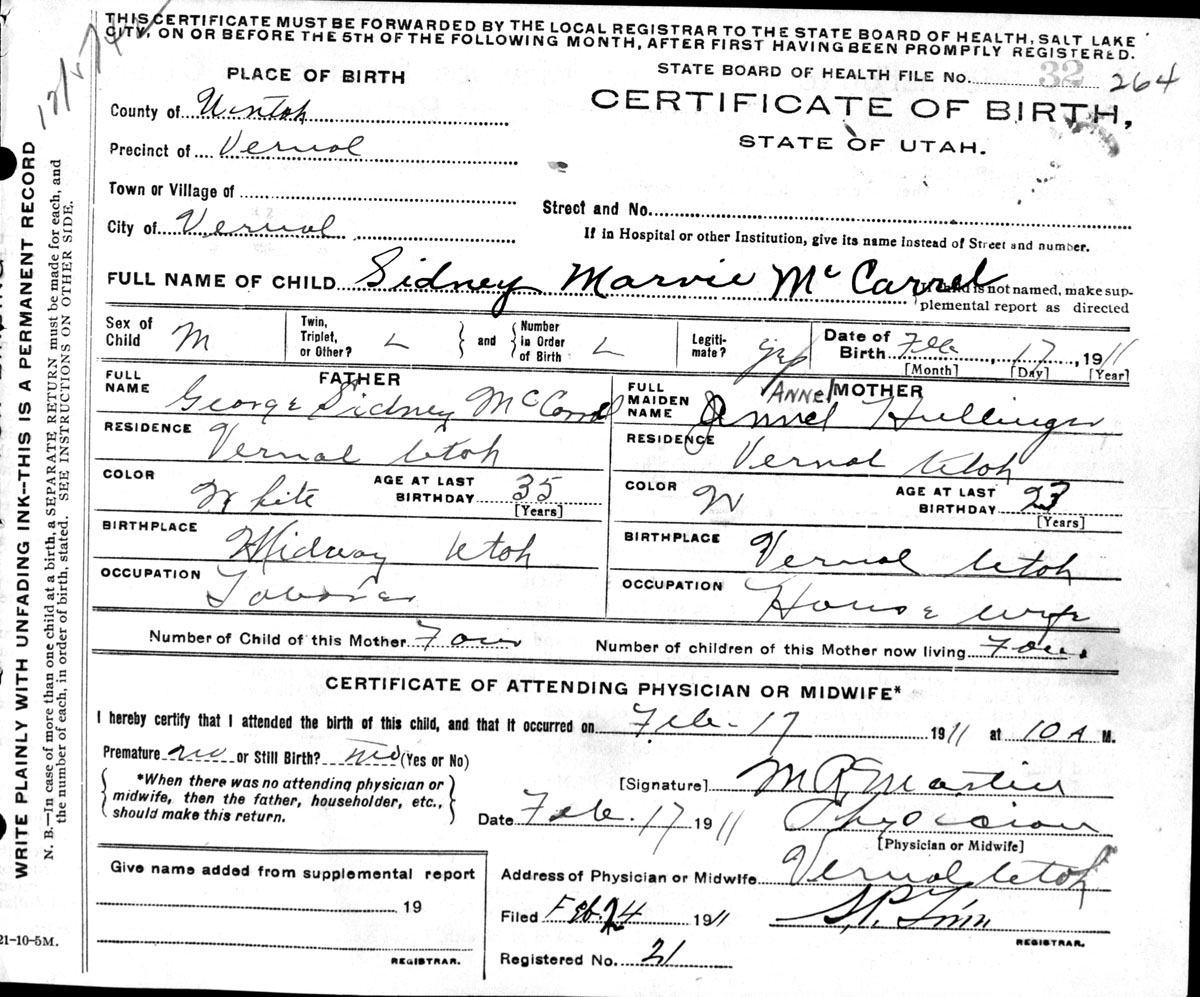 THIS CERTIFICATE MUST BE FORWARDED BY THE LOCAL REGISTRAR TO THE STATE BOARD OF HEALTH, SALT LAKE
CITY, ON OR BEFORE THE 5TH OF THE FOLLOWING MONTH, AFTER FIRST HAVING BEEN PROMPTLY REGISTERED.
STATE BOARD OF HEALTH FILE No. 32 264
PLACE OF BIRTH
CERTIFICATE OF BIRTH,
STATE OF UTAH.
County of Uintah
Precinct of Vernal
Town or Village of
City of Vernal
Street and No.
If in Hospital or other Institution, give its name instead of Street and number.
FULL NAME OF CHILD Sidney Marvie McCarrel
is not named, make sup-
plemental report as directed
Sex of Child M
Twin, Triplet, or Other? and Number in Order of Birth
Legiti-mate?
Date of Birth Feb 17, 1911
[Month] [Day] [Year]
FATHER
FULL NAME George Sidney McCarrel
RESIDENCE Vernal Utah
COLOR White AGE AT LAST BIRTHDAY 35 [Years]
BIRTHPLACE Midway Utah
OCCUPATION
MOTHER
FULL MAIDEN NAME ANNEL Annel Hullinger
RESIDENCE Vernal Utah
COLOR W AGE AT LAST BIRTHDAY 23 [Years]
BIRTHPLACE Vernal Utah
OCCUPATION House wife
Number of Child of this Mother Four Number of children of this Mother now living Four
CERTIFICATE OF ATTENDING PHYSICIAN OR MIDWIFE*
I hereby certify that I attended the birth of this child, and that it occurred on Feb-17 1911 at 10 A M.
Premature no or Still Birth? no (Yes or No)
*When there was no attending physician or
midwife, then the father, householder, etc.,
should make this return.
[Signature] M R Martin
Date Feb. 17 1911 Physician
[Physician or Midwife]
Address of Physician or Midwife Vernal Utah
Filed Feb. 24 1911
REGISTRAR.
Registered No. 21
Give name added from supplemental report
19
REGISTRAR.
21-10-5M.
WRITE PLAINLY WITH UNFADING INK—THIS IS A PERMANENT RECORD
N. B.—In case of more than one child at a birth, a SEPARATE RETURN must be made for each, and
the number of each, in order of birth, stated. SEE INSTRUCTIONS ON OTHER SIDE.